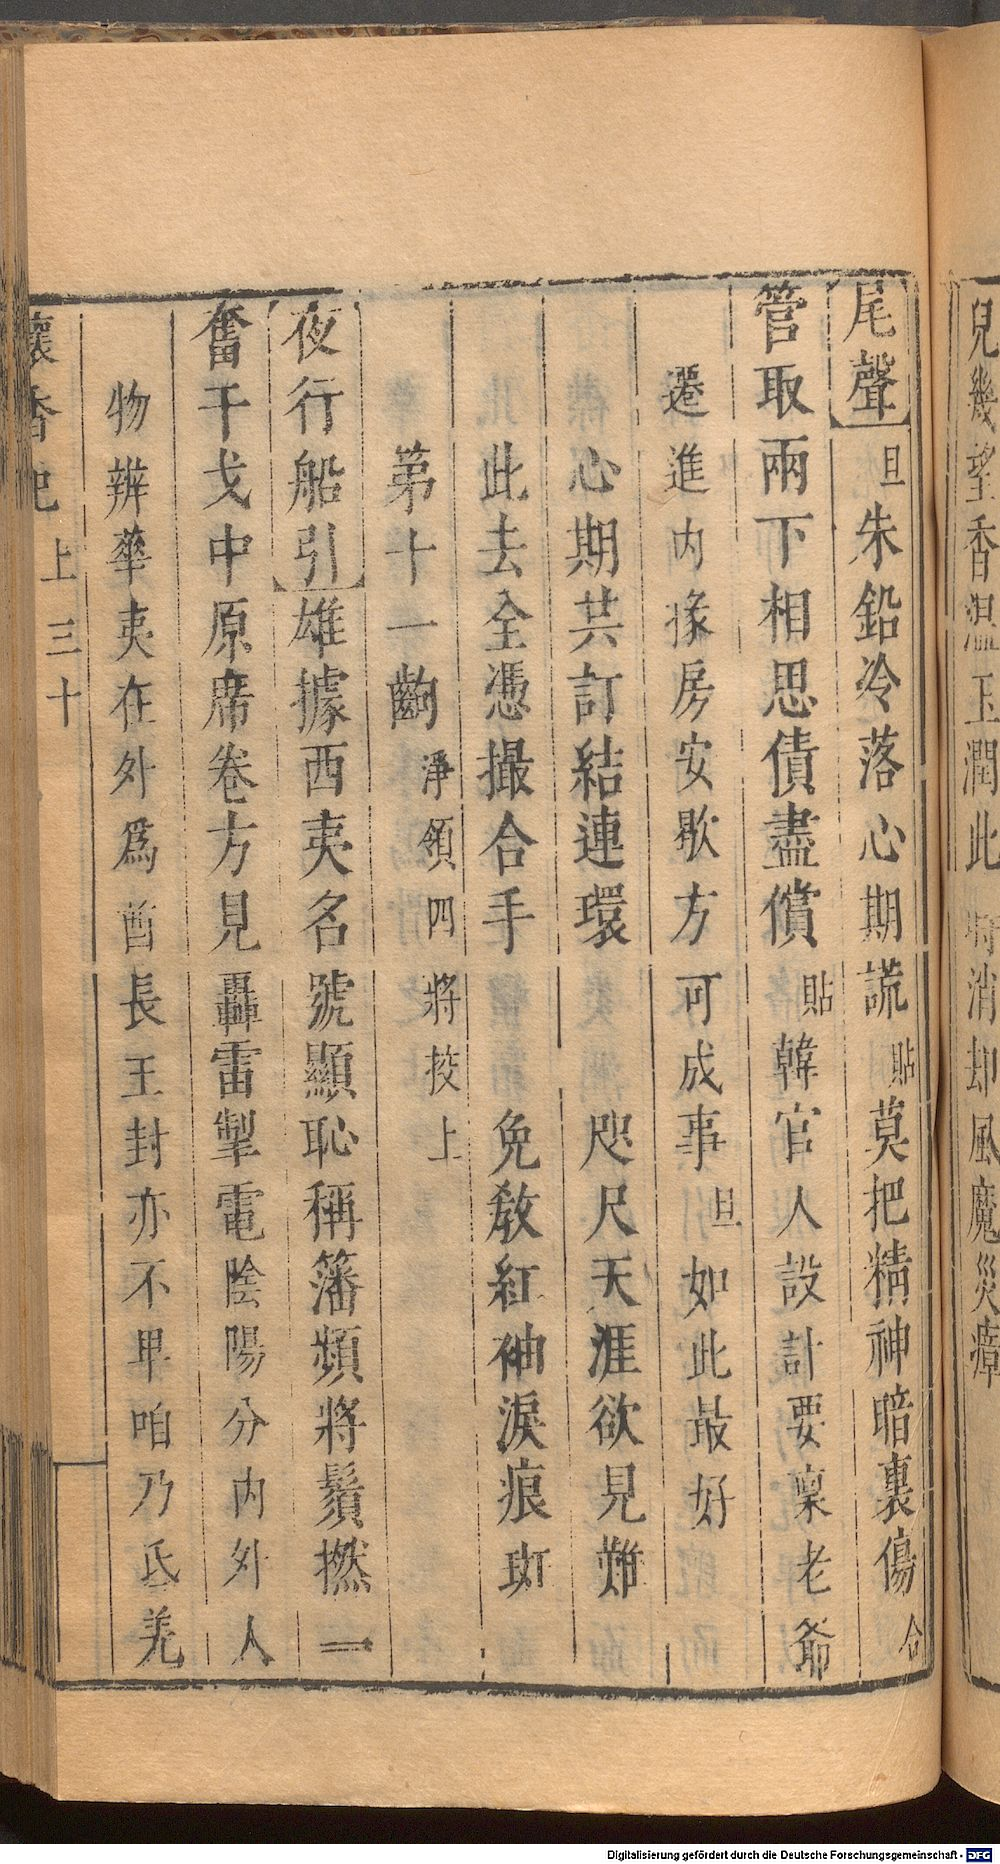 兒幾望香溫玉潤此時消却風魔災瘴
尾聲 旦 朱鉛冷落心期謊 貼 莫把精神暗裏傷 合
管取兩下相思債盡償 貼 韓官人設計要稟老爺
選進內掾房安歇方可成事 旦 如此最好
心期共訂結連環 咫尺天涯欲見難
此去全憑撮合手 免教紅袖淚痕斑
第十一齣 淨領四將扮上
夜行船引 雄據西夷名號顯恥稱籓頻將鬚撚一
奮干戈中原席卷方見轟雷掣電 陰陽分內外人
物辨華夷在外為酋長王封亦不卑咱乃氐羌
懷香記 上 三十
Digitalisierung gefördert durch die Deutsche Forschungsgemeinschaft - DFG